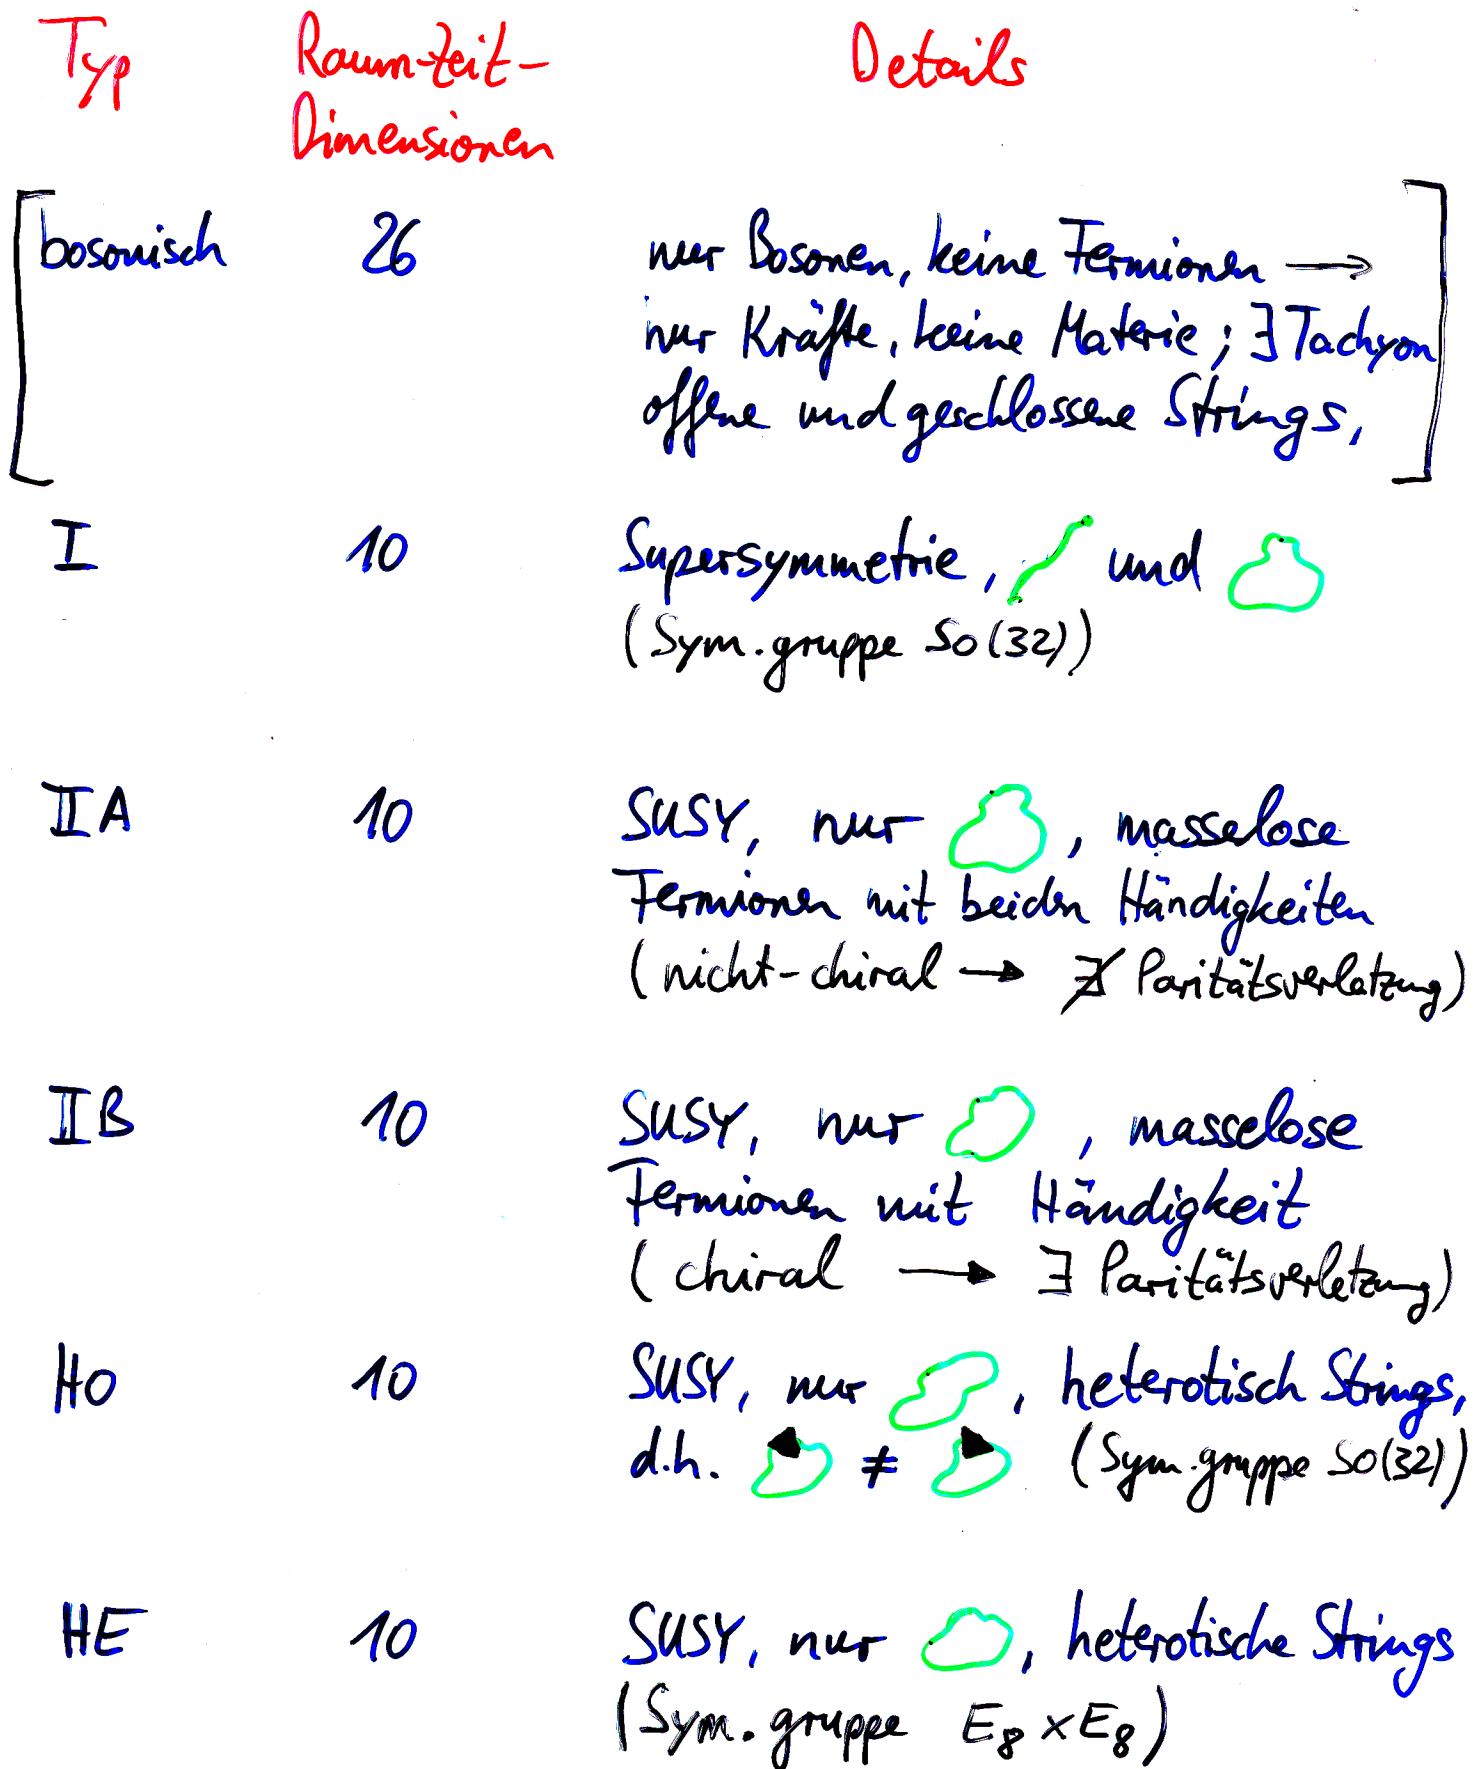 Typ Raum-Zeit- Details
Dimensionen
bosonisch 26 nur Bosonen, keine Fermionen →
nur Kräfte, keine Materie; ∃ Tachyon
offene und geschlossene Strings,
I 10 Supersymmetrie, und
(Sym.gruppe SO(32))
IIA 10 SUSY, nur , masselose
Fermionen mit beiden Händigkeiten
(nicht-chiral → ∄ Paritätsverletzung)
IIB 10 SUSY, nur , masselose
Fermionen mit Händigkeit
(chiral → ∃ Paritätsverletzung)
HO 10 SUSY, nur , heterotisch Strings,
d.h. ≠ (Sym.gruppe SO(32))
HE 10 SUSY, nur , heterotische Strings
(Sym.gruppe E₈ × E₈)